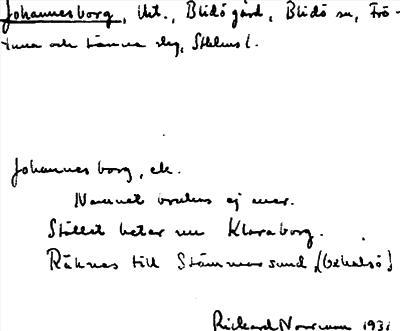 Johannesborg, lht., Blidö gård, Blidö sn, Frö-
tuna och Länna slg, Sthlms l.
Johannesborg, ek.
Namnet brukas ej mer.
Stället heter nu Klaraborg.
Räknas till Stämmarsund, (Oxhalsö)
Rickard Norrman 1931